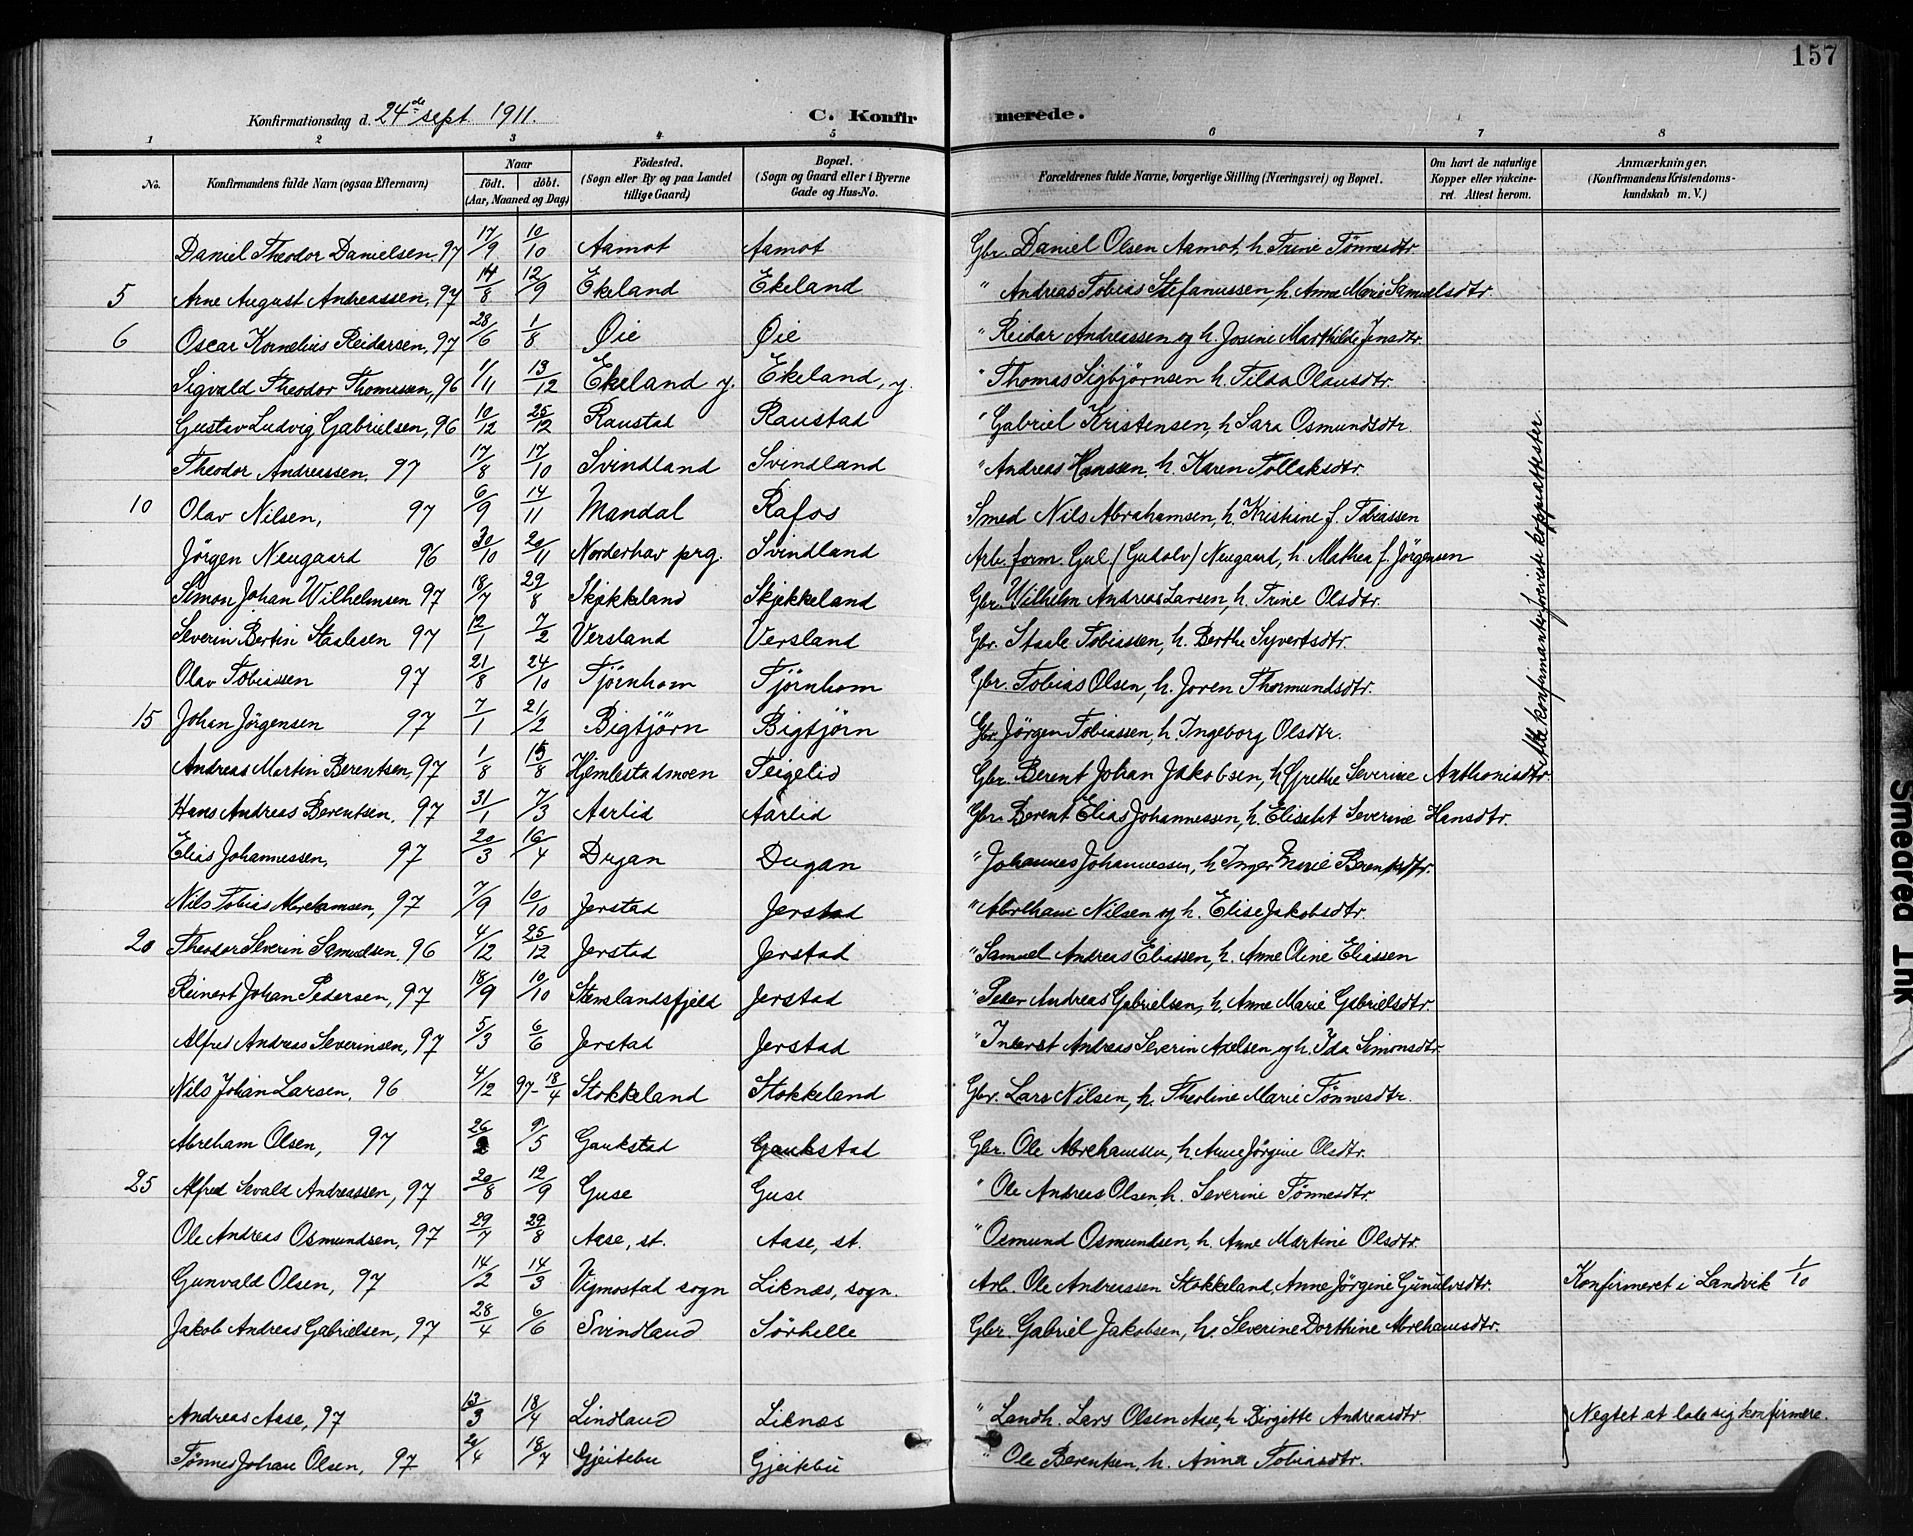 157
Konfirmationsdag d. 24de sept. 1911. C. Konfirmerede.
1 2 3 4 5 6 7 8
No. Konfirmandens fulde Navn (ogsaa Efternavn) Naar født. døbt. (Aar, Maaned og Dag) Födested. (Sogn eller By og paa Landet tillige Gaard) Bopæl. (Sogn og Gaard eller i Byerne Gade og Hus-No. Forældrenes fulde Navne, borgerlige Stilling (Næringsvei) og Bopæl. Om havt de naturlige Kopper eller vakcineret. Attest herom. Anmærkninger. (Konfirmandens Kristendomskundskab m. V.)
Daniel Theodor Danielsen, 97 17/9 10/10 Aamot Aamot Gbr. Daniel Olsen Aamot, h. Trine Tønnesdtr.
5 Arne August Andreassen, 97 14/8 12/9 Ekeland Ekeland " Andreas Tobias Stefanussen, h. Anne Marie Samuelsdtr.
6 Oscar Kornelius Reidarsen, 97 28/6 1/8 Øie Øie " Reidar Andreassen og h. Josine Marthilde Jensdtr.
Sigvald Theodor Thomassen, 96 1/11 13/12 Ekeland y. Ekeland, y. " Thomas Sigbjørnsen h. Tilda Olausdtr.
Gustav Ludvig Gabrielsen, 96 10/12 25/12 Raustad Raustad " Gabriel Kristensen, h. Sara Osmundsdtr.
Theodor Andreassen, 97 17/8 17/10 Svindland Svindland " Andreas Hanssen, h. Karen Tollaksdtr.
10 Olav Nilsen, 97 6/9 14/11 Mandal Rafos Smed Nils Abrahamsen, h. Kristine f. Tobiassen
Jørgen Neugaard 96 30/10 20/11 Norderhav prg. Svindland Arb. form. Gul (Gudolv) Neugaard, h. Mathea f. Jörgensen
Simon Johan Wilhelmsen 97 18/7 29/8 Skjekkeland Skjekkeland Gbr. Wilhelm Andreas Larsen, h. Trine Olsdtr.
Severin Bertin Staalesen 97 12/1 7/2 Versland Versland Gbr. Staale Tobiassen, h. Berthe Syvertsdtr.
Olav Tobiassen 97 21/8 24/10 Tjörnhom Tjörnhom Gbr. Tobias Olsen, h. Joren Thormundsdtr.
15 Johan Jørgensen 97 7/1 21/2 Bigtjörn Bigtjörn Gbr. Jörgen Tobiassen, h. Ingeborg Olsdtr.
Andreas Martin Berentsen, 97 1/8 15/8 Hjemlestadmoen Teigelid Gbr. Berent Johan Jakobsen, h. Grethe Severine Anthonisdtr.
Hans Andreas Berentsen, 97 31/1 7/3 Aarlid Aarlid Gbr. Berent Elias Johannessen, h. Elisabet Severine Hansdtr.
Elias Johannessen, 97 20/3 16/4 Drjan Dugan " Johannes Johannessen, h. Inger Marie Berentsdtr.
Nils Tobias Abrehamsen, 97 7/9 10/10 Jerstad Jerstad " Abreham Nilsen og h. Elise Jakobsdtr.
20 Theodor Severin Samuelsen, 96 4/12 25/12 Jerstad Jerstad " Samuel Andreas Eliassen, h. Anne Oline Eliassen
Reinert Johan Pedersen, 97 18/9 10/10 Stenslandsfjeld Jerstad " Peder Andreas Gabrielsen, h. Anne Marie Gabrielsdtr.
Alfred Andreas Severinsen, 97 5/3 6/6 Jerstad Jerstad " Inderst Andreas Severin Axelsen, og h. Ida Simonsdtr.
Nils Johan Larsen, 96 4/12 97-18/4 Stokkeland Stokkeland Gbr. Lars Nilsen, h. Theoline Marie Tønnesdtr.
Abreham Olsen, 97 26/2 9/5 Gaukstad Gaukstad Gbr. Ole Abrehamsen, h. Anne Jörgine Olsdtr.
25 Alfred Sevald Andreassen, 97 20/8 12/9 Guse Guse " Ole Andreas Olsen, h. Severine Tønnesdtr.
Ole Andreas Osmundsen, 97 29/7 29/8 Aase, st. Aase, st. " Osmund Osmundsen, h. Anne Martine Olsdtr.
Gunvald Olsen, 97 14/2 14/3 Vigmostad sogn Liknæs, sogn. Arb. Ole Andreassen Stokkeland, Anne Jörgine Gunulvsdtr. Konfirmeret i Landvik 1/10
Jakob Andreas Gabrielsen, 97 28/4 6/6 Svindland Sørhelle Gbr. Gabriel Jakobsen, h. Severine Dorthine Abrehamsdtr.
Andreas Aase, 97 13/3 18/4 Lindland Liknæs " Landh. Lars Olsen Aase, h. Birgitte Andreasdtr. Negtet at lade sig konfirmere.
Tønnes Johan Olsen, 97 20/4 18/7 Gjeitebu Gjeitebu " Ole Berentsen, h. Anna Tobiasdtr.
Alle konfirmanter foreviste koppeattester.
Smeared Ink